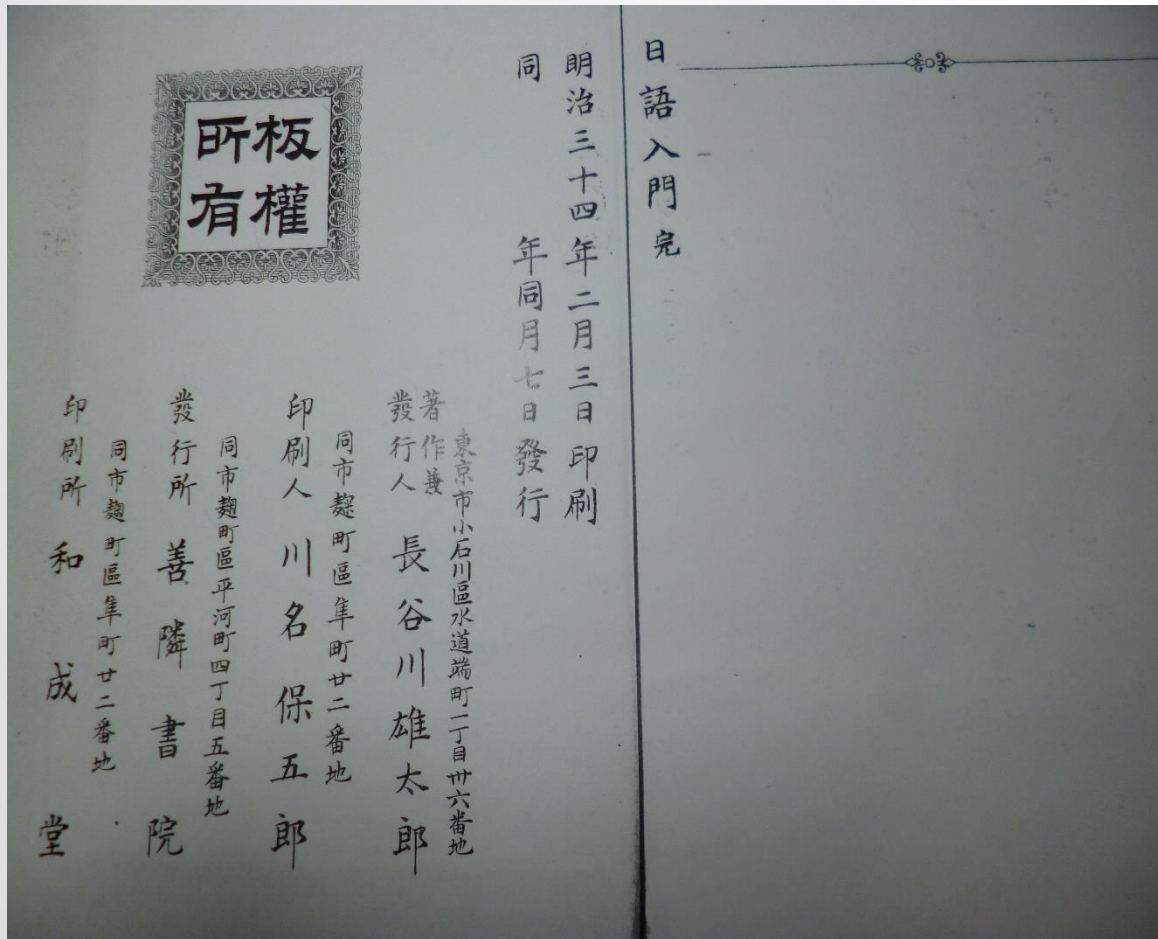 日語入門完
明治三十四年二月三日印刷
同年同月七日發行
東京市小石川區水道端町一丁目卅六番地
著作兼
發行人 長谷川雄太郎
同市麹町區隼町廿二番地
印刷人 川名保五郎
同市麹町區平河町四丁目五番地
發行所 善隣書院
同市麹町區隼町廿二番地
印刷所 和成堂
板權
所有